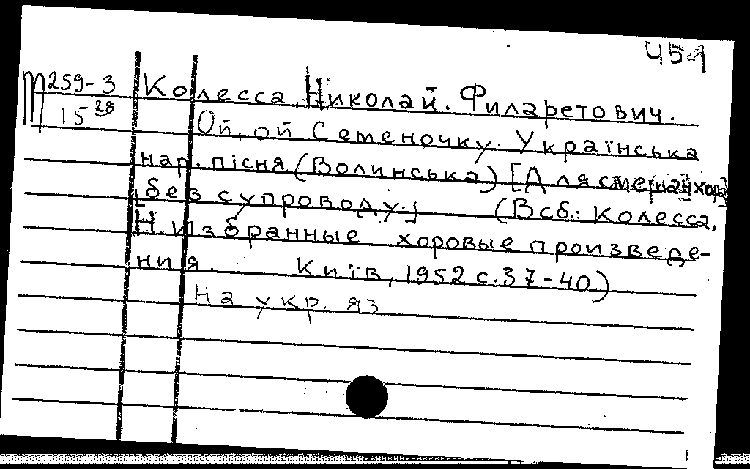 459
М259-3 Колесса, Николай. Филаретович.
15 28 Ой, ой Семеночку. Українська
нар. пісня (Волинська) [Для смешан хора
без супроводу.] (В сб.: Колесса,
Н. Избранные хоровые произведе-
ния. Київ, 1952 с. 37-40)
На укр. яз